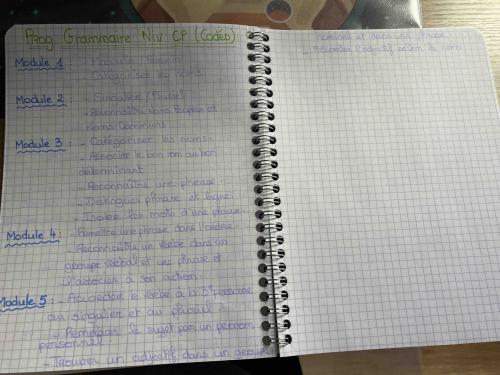 Prog Grammaire Niv CP (Codéb)
Module 1 : - Masculin / Féminin
- Catégoriser les noms
Module 2 : - Singulier / Pluriel
- Reconnaître noms propres et
noms communs
Module 3 : - Catégoriser les noms.
- Associer le bon nom au bon
déterminant
- Reconnaître une phrase
- Distinguer phrase et ligne
- Isoler les mots d'une phrase.
Module 4 : - Remettre une phrase dans l'ordre
- Reconnaître un verbe dans un
groupe verbal et une phrase et
l'associer à son action
Module 5 : - Accorder le verbe à la 3e personne
au singulier et au pluriel
- Remplacer le sujet par un pronom
personnel
- Trouver un adjectif dans un groupe
nominal et dans une phrase
- Accorder l'adjectif selon le nom